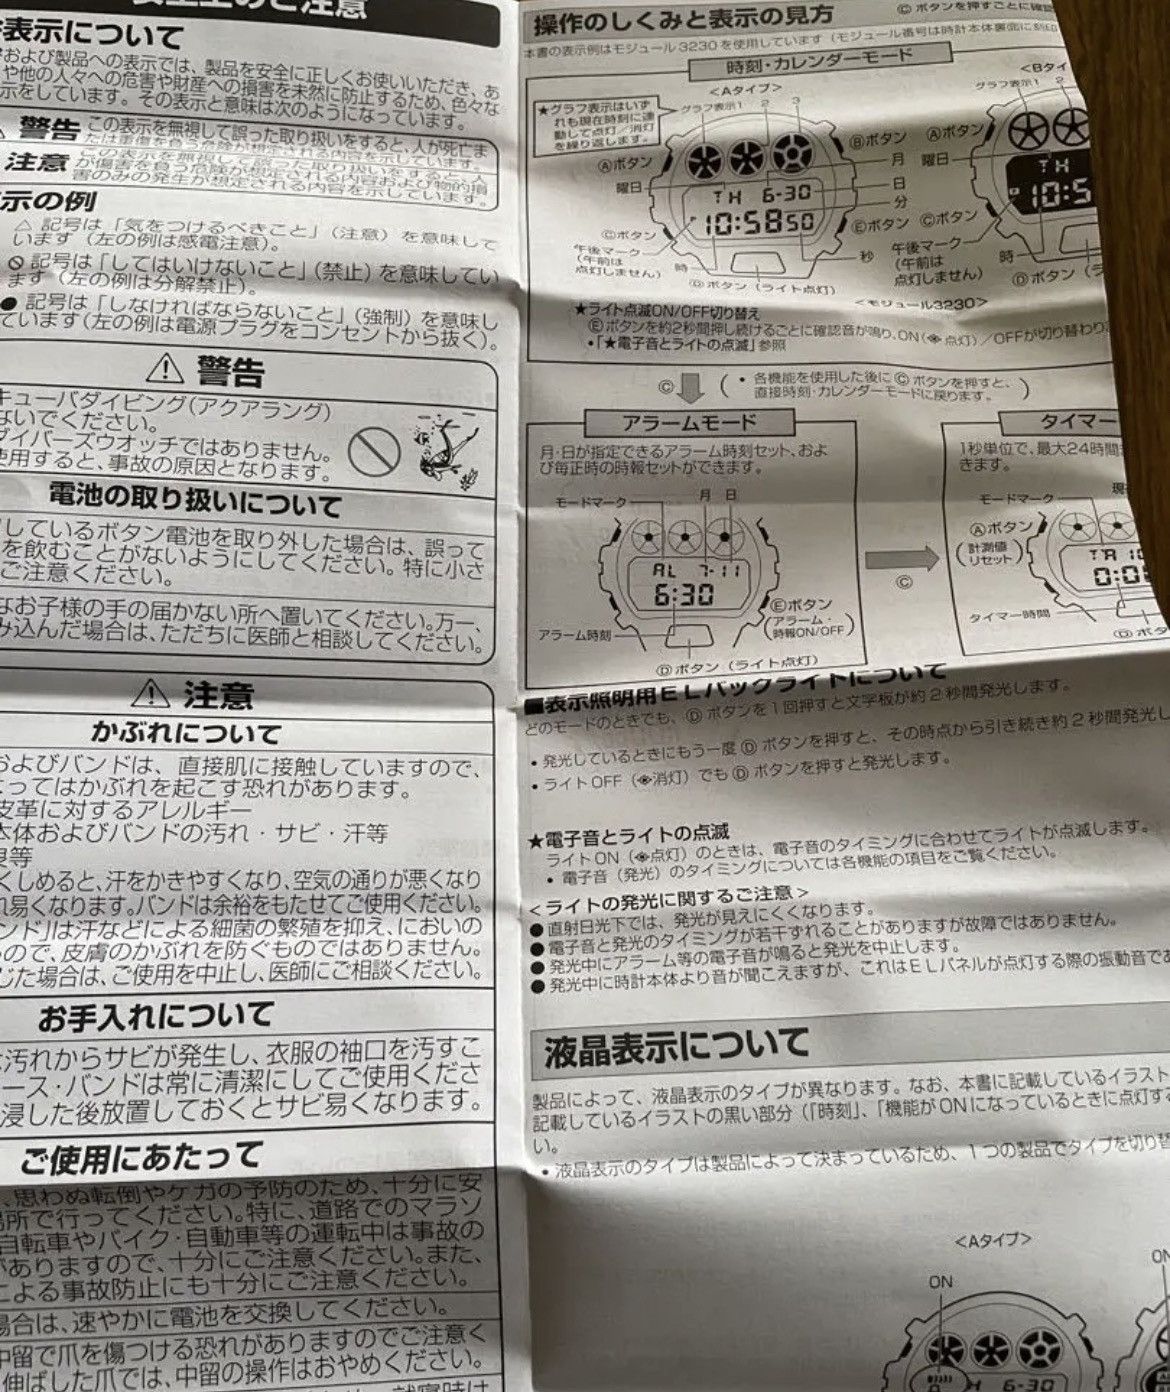 安全上のご注意
表示について
および製品への表示では、製品を安全に正しくお使いいただき、あ
や他の人々への危害や財産への損害を未然に防止するため、色々な
示をしています。その表示と意味は次のようになっています。
警告 この表示を無視して誤った取り扱いをすると、人が死亡ま
たは重傷を負う危険が想定される内容を示しています。
注意
が傷害を負う危険が想定される内容および物的損
害のみの発生が想定される内容を示しています。
示の例
△ 記号は「気をつけるべきこと」(注意) を意味して
います (左の例は感電注意)。
記号は「してはいけないこと」(禁止) を意味してい
ます (左の例は分解禁止)。
● 記号は「しなければならないこと」(強制) を意味し
ています(左の例は電源プラグをコンセントから抜く)。
⚠ 警告
キューバダイビング(アクアラング)
ないでください。
ダイバーズウオッチではありません。
使用すると、事故の原因となります。
電池の取り扱いについて
しているボタン電池を取り外した場合は、誤って
を飲むことがないようにしてください。特に小さ
ご注意ください。
なお子様の手の届かない所へ置いてください。万一、
み込んだ場合は、ただちに医師と相談してください。
⚠ 注意
かぶれについて
およびバンドは、直接肌に接触していますので、
よってはかぶれを起こす恐れがあります。
皮革に対するアレルギー
本体およびバンドの汚れ・サビ・汗等
良等
くしめると、汗をかきやすくなり、空気の通りが悪くなり
れ易くなります。バンドは余裕をもたせてご使用ください。
ンド」は汗などによる細菌の繁殖を抑え、においの
ので、皮膚のかぶれを防ぐものではありません。
じた場合は、ご使用を中止し、医師にご相談ください。
お手入れについて
汚れからサビが発生し、衣服の袖口を汚すこ
ース・バンドは常に清潔にしてご使用くださ
浸した後放置しておくとサビ易くなります。
ご使用にあたって
、思わぬ転倒やケガの予防のため、十分に安
場所で行ってください。特に、道路でのマラソ
自転車やバイク・自動車等の運転中は事故の
がありますので、十分にご注意ください。また、
による事故防止にも十分にご注意ください。
場合は、速やかに電池を交換してください。
中留で爪を傷つける恐れがありますのでご注意く
伸ばした爪では、中留の操作はおやめください。
操作のしくみと表示の見方
Ⓒ ボタンを押すごとに確認
本書の表示例はモジュール3230を使用しています (モジュール番号は時計本体裏面に刻印
時刻・カレンダーモード
<Aタイプ>
★グラフ表示はいず
れも現在時刻に連
動して点灯/消灯
を繰り返します。
グラフ表示1 2 3
Ⓐボタン
Ⓑボタン
月
曜日
日
分
TH 6-30
P 10:58 50
Ⓒボタン
Ⓔボタン
午後マーク
(午前は
点灯しません)
時
秒
Ⓓボタン (ライト点灯)
<Bタイ
グラフ表示1 2
Ⓐボタン
曜日
TH
P 10:5
Ⓒボタン
午後マーク
(午前は
点灯しません)
時
Ⓓボタン (ラ
<モジュール3230>
★ライト点滅ON/OFF切り替え
Ⓔボタンを約2秒間押し続けるごとに確認音が鳴り、ON(点灯)/OFFが切り替わり
・「★電子音とライトの点滅」参照
Ⓒ
( ・各機能を使用した後に Ⓒ ボタンを押すと、
直接時刻・カレンダーモードに戻ります。 )
アラームモード
月・日が指定できるアラーム時刻セット、およ
び毎正時の時報セットができます。
モードマーク
月 日
AL 7-11
6:30
Ⓔボタン
(アラーム・
時報ON/OFF)
アラーム時刻
Ⓓボタン (ライト点灯)
Ⓒ
タイマー
1秒単位で、最大24時間
きます。
モードマーク
現
Ⓐボタン
(計測値
リセット)
TR 10
0:0
タイマー時間
Ⓓボタ
■表示照明用ELバックライトについて
どのモードのときでも、Ⓓ ボタンを1回押すと文字板が約2秒間発光します。
・発光しているときにもう一度 Ⓓ ボタンを押すと、その時点から引き続き約2秒間発光し
・ライトOFF (消灯) でも Ⓓ ボタンを押すと発光します。
★電子音とライトの点滅
ライトON (点灯) のときは、電子音のタイミングに合わせてライトが点滅します。
・電子音 (発光) のタイミングについては各機能の項目をご覧ください。
<ライトの発光に関するご注意>
●直射日光下では、発光が見えにくくなります。
●電子音と発光のタイミングが若干ずれることがありますが故障ではありません。
●発光中にアラーム等の電子音が鳴ると発光を中止します。
●発光中に時計本体より音が聞こえますが、これはELパネルが点灯する際の振動音であ
液晶表示について
製品によって、液晶表示のタイプが異なります。なお、本書に記載しているイラスト
記載しているイラストの黒い部分 (「時刻」、「機能がONになっているときに点灯する
い。
・液晶表示のタイプは製品によって決まっているため、1つの製品でタイプを切り替
<Aタイプ>
ON
ON
6-30